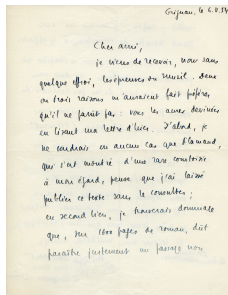 Grignan, le 6.V.54
Cher ami,
je viens de recevoir, non sans
quelque effroi, les épreuves du Musil. Deux
ou trois raisons m'auraient fait préférer
qu'il ne parût pas : vous les aurez devinées
en lisant ma lettre d'hier. D'abord, je
ne voudrais en aucun cas que Flamand,
qui s'est montré d'une rare courtoisie
à mon égard, pense que j'ai laissé
publier ce texte sans le consulter ;
en second lieu, je trouverais dommage
que, sur 1600 pages de roman, dût
paraître justement un passage non